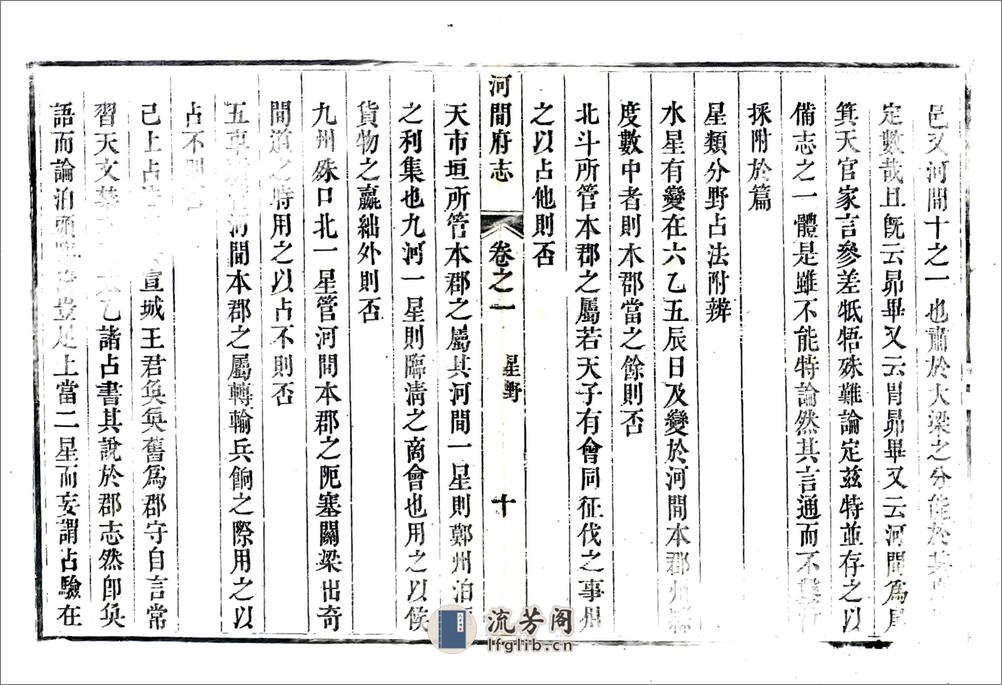 邑又河間十之一也肅於大梁之分能於其
定數哉且旣云昴畢又云胃昴畢又云河間爲尾
箕天官家言參差牴牾殊難論定茲特並存之以
備志之一體是雖不能特論然其言通而不
採附於篇
星類分野占法附辨
水星有變在六乙五辰日及變於河間本郡州縣
度數中者則本郡當之餘則否
北斗所管本郡之屬若天子有會同征伐之事用
之以占他則否
河間府志 卷之一 星野 十
天市垣所管本郡之屬其河間一星則鄭州泊
之利集也九河一星則臨淸之商會也用之以候
貨物之贏絀外則否
九州殊口北一星管河間本郡之阨塞關梁出奇
間道之時用之以占不則否
五車 河間本郡之屬轉輸兵餉之際用之以
占不則否
已上占 宣城王君奐奐舊爲郡守自言常
習天文 太乙諸占書其說於郡志然卽奐
語而論泊頭 豈足上當二星而妄謂占驗在
流芳阁
lfglib.cn